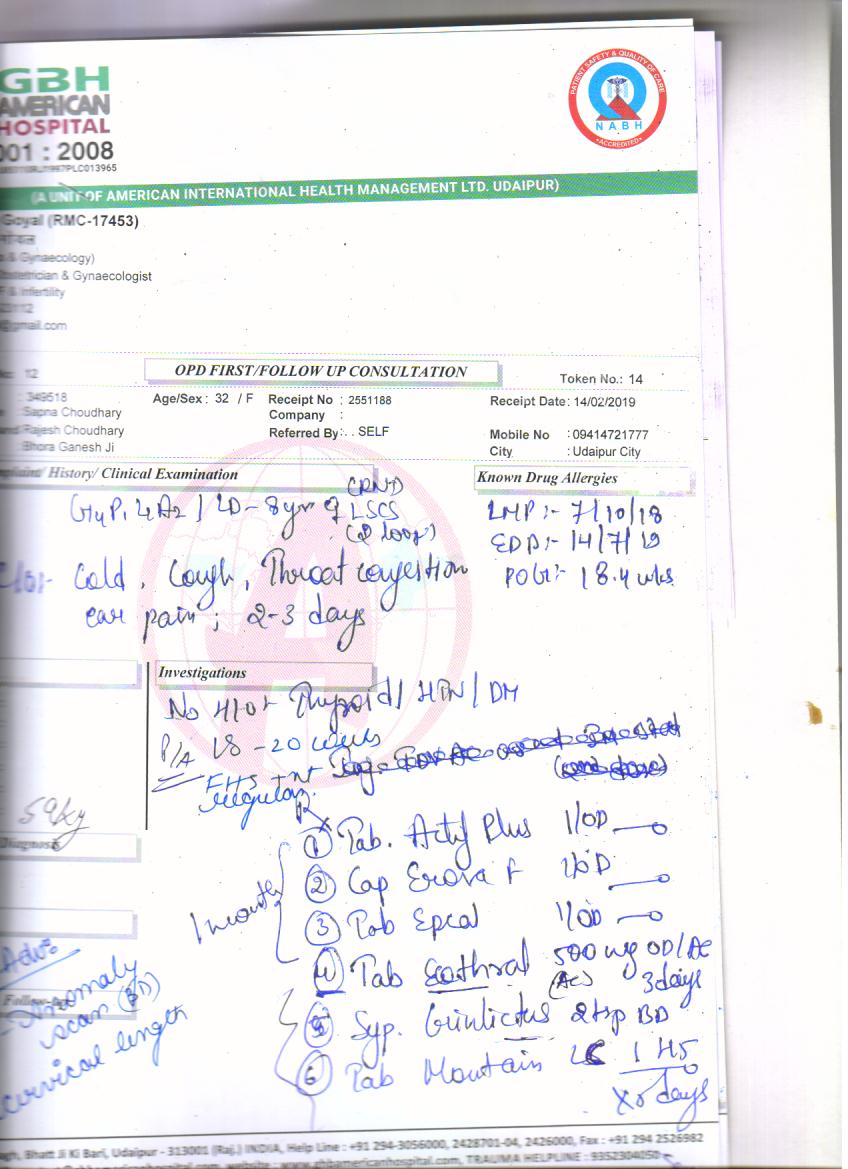 GBH
AMERICAN
HOSPITAL
001 : 2008
PLC013965
PATIENT SAFETY & QUALITY OF CARE
NABH
ACCREDITED
(A UNIT OF AMERICAN INTERNATIONAL HEALTH MANAGEMENT LTD. UDAIPUR)
Goyal (RMC-17453)
गोयल
& Gynaecology)
Obstetrician & Gynaecologist
F & Infertility
@gmail.com
12
OPD FIRST/FOLLOW UP CONSULTATION
Token No.: 14
: 349518
Age/Sex : 32 / F
Receipt No : 2551188
Receipt Date: 14/02/2019
: Sapna Choudhary
Company :
Rajesh Choudhary
Referred By: . SELF
Mobile No : 09414721777
: Bhora Ganesh Ji
City : Udaipur City
plaint/ History/ Clinical Examination
Known Drug Allergies
G4P1L1A2 / LD - 8yr LSCS
LMP :- 7/10/18
EDD :- 14/7/19
POG :- 18.4 wks
C/o :- Cold, Cough, Throat congestion
ear pain ; 2-3 days
Investigations
No H/o :- Thyroid / HTN / DM
P/A 18 - 20 weeks
FHS
regular
59 kg
Diagnosis
Rx
1 month
① Tab. Acty Plus 1 OD
② Cap F 1 OD
③ Tab Epcal 1 OD
④ Tab 500 mg OD / AC
3 days
⑤ Syp. Grilinctus 2 tsp BD
⑥ Tab Montair LC 1 HS
days
Adv:-
Follow-up
- Anomaly
scan
cervical length
Bhatt Ji Ki Bari, Udaipur - 313001 (Raj.) INDIA, Help Line : +91 294-3056000, 2428701-04, 2426000, Fax : +91 294 2526982
website : www.gbhamericanhospital.com, TRAUMA HELPLINE : 9352304050